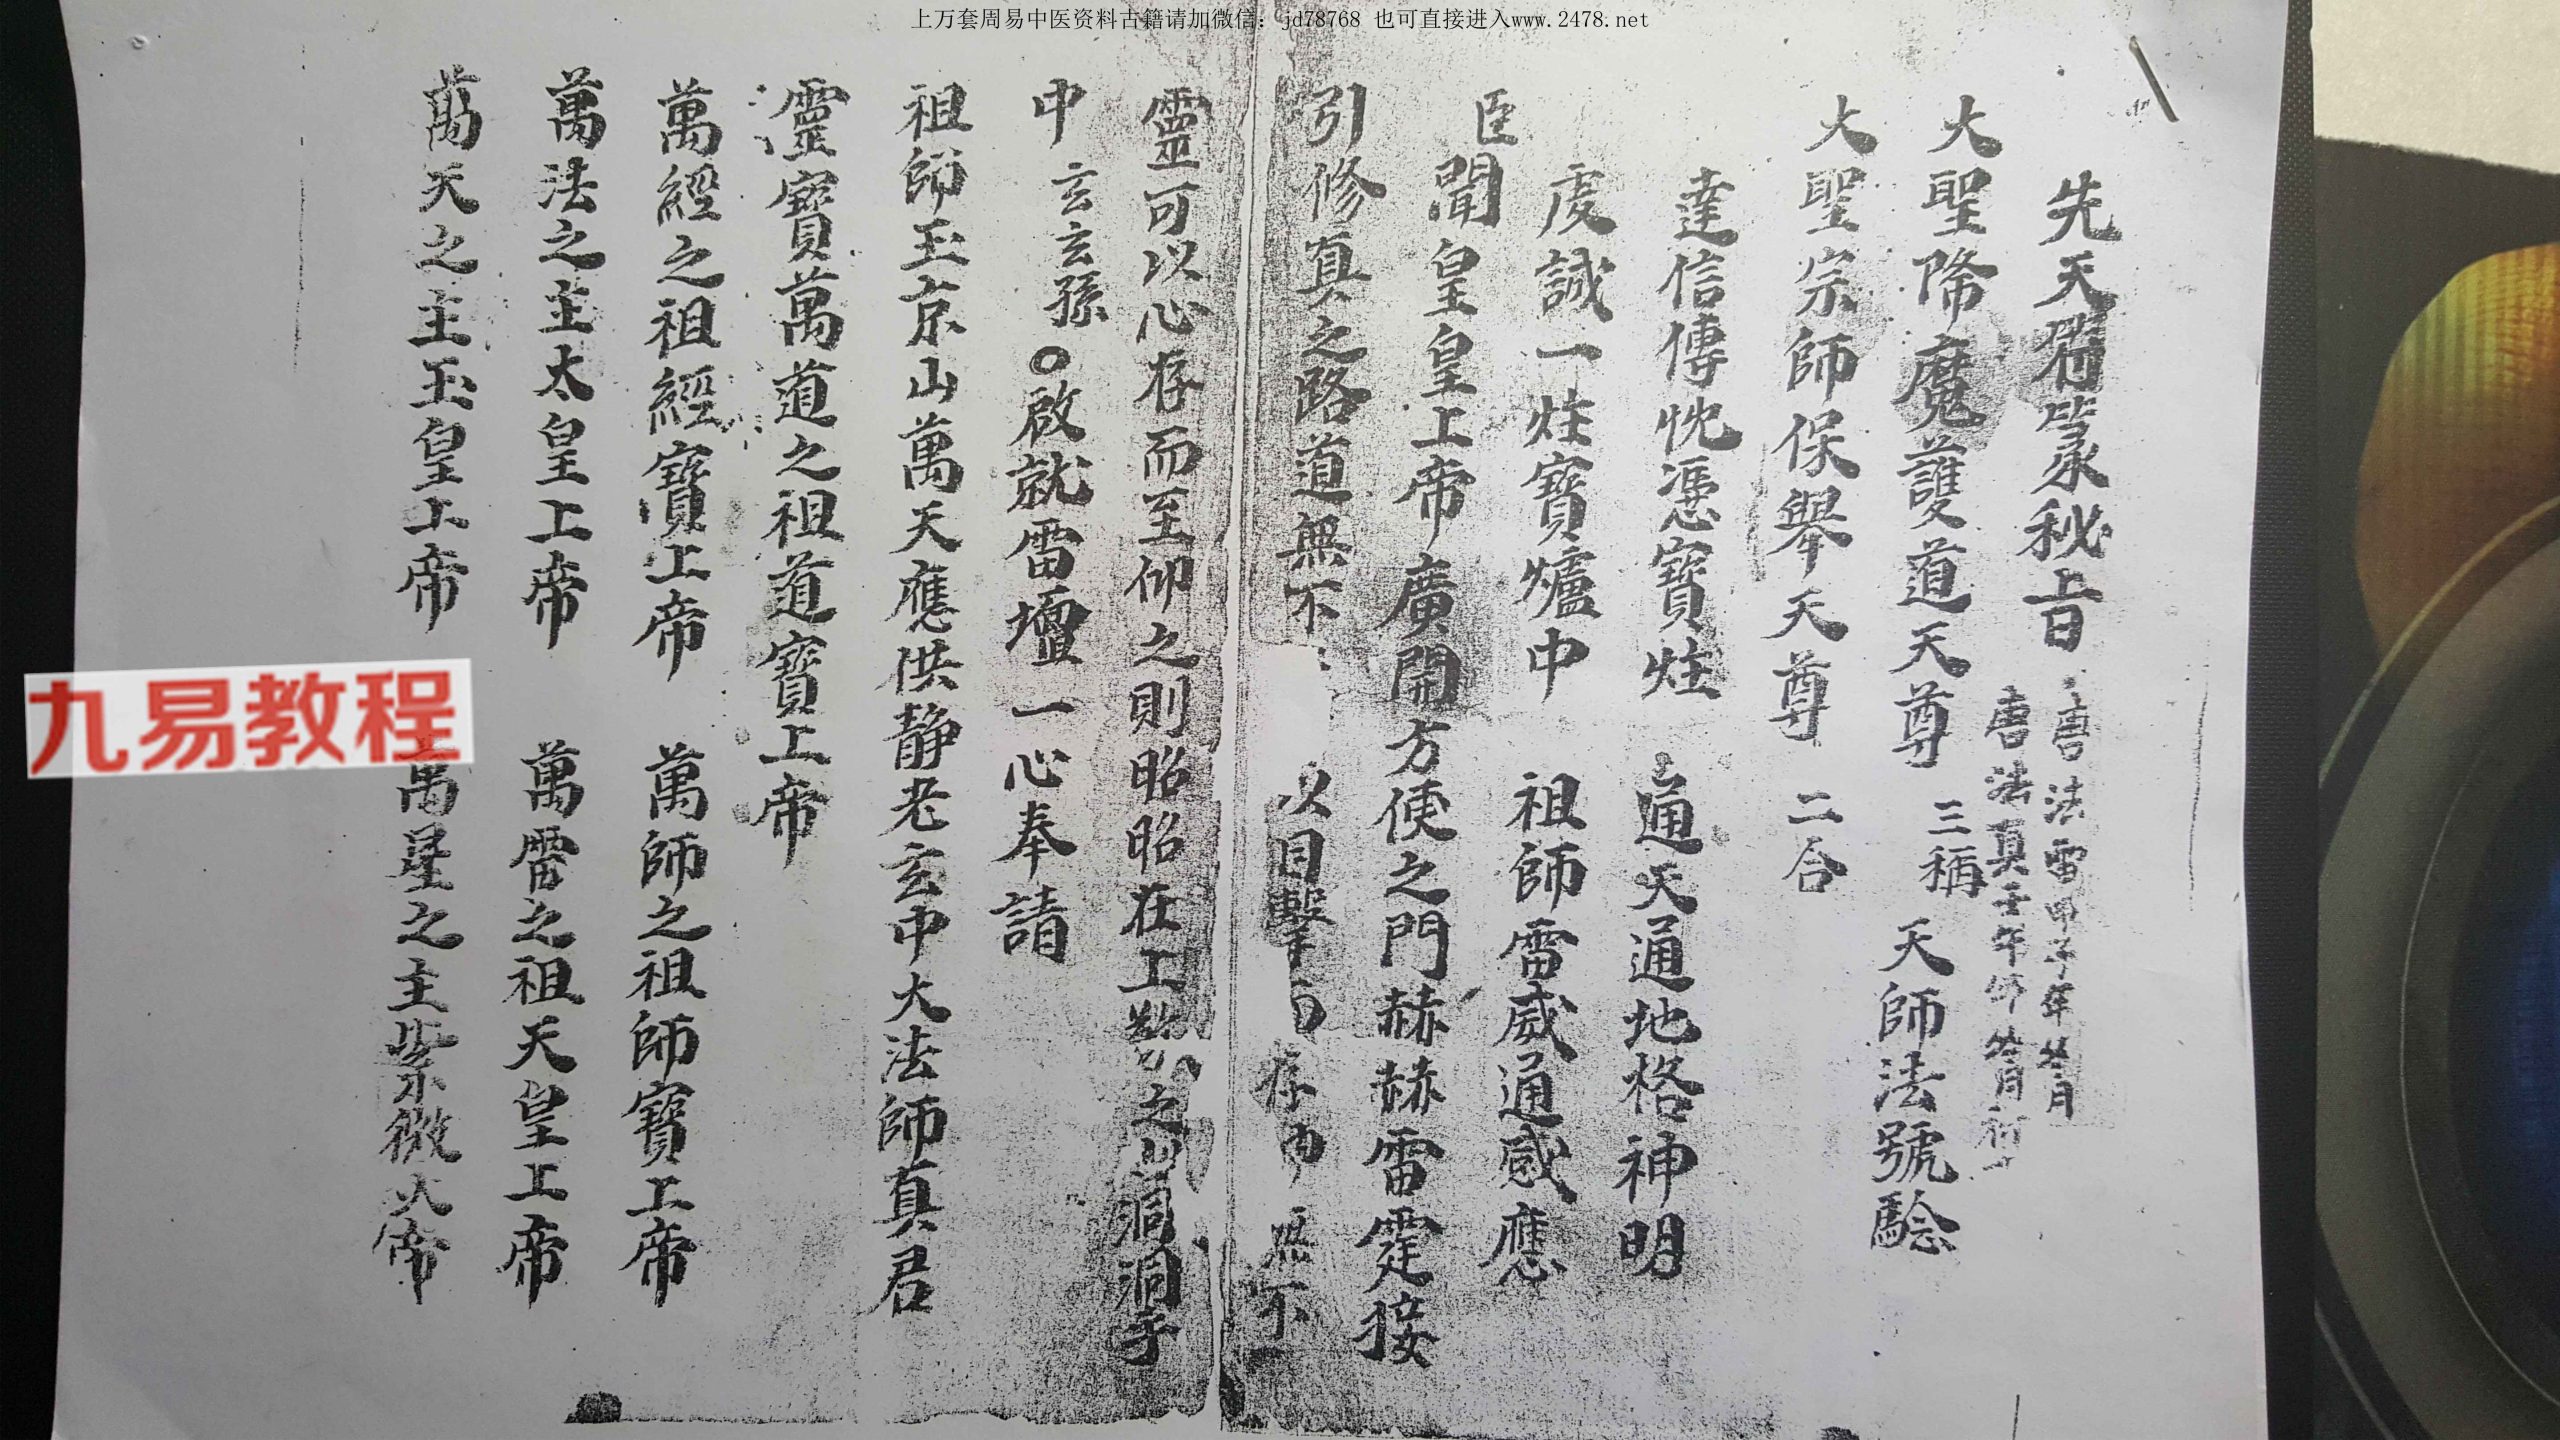 上万套周易中医资料古籍请加微信：jd78768 也可直接进入www.2478.net
先天符箓秘旨
唐法雷甲子年
唐法真壬午年
大聖降魔護道天尊 三稱 天師法號驗
大聖宗師保舉天尊 二合
達信傳忱憑寶炷 通天通地格神明
虔誠一炷寶爐中 祖師雷威通感應
臣聞皇皇上帝廣開方便之門赫赫雷霆接
引修真之路道無不 以目擊 存 無不
靈可以心存而至仰之則昭昭在上 之 洞洞乎
中 玄玄孫〇啟就雷壇一心奉請
祖師玉京山萬天應供静老玄中大法師真君
靈寶萬道之祖道寶上帝
萬經之祖經寶上帝 萬師之祖師寶上帝
萬法之主太皇上帝 萬雷之祖天皇上帝
萬天之主玉皇上帝 萬星之主紫微大帝
九易教程